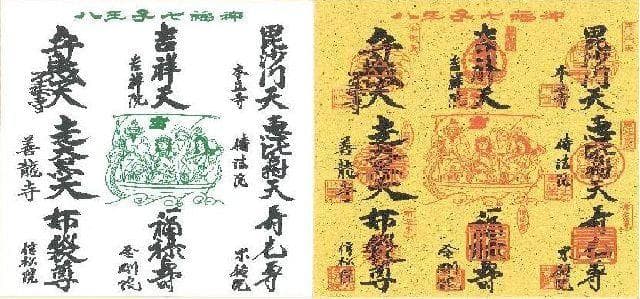 八王子七福神
毘沙門天
本立寺
恵比寿天
傳法院
寿老尊
宗格院
吉祥天
吉祥院
福禄寿
金剛院
弁財天
了法寺
走大黒天
善龍寺
布袋尊
信松院
八王子七福神
毘沙門天
本立寺
恵比寿天
傳法院
寿老尊
宗格院
吉祥天
吉祥院
福禄寿
金剛院
弁財天
了法寺
走大黒天
善龍寺
布袋尊
信松院